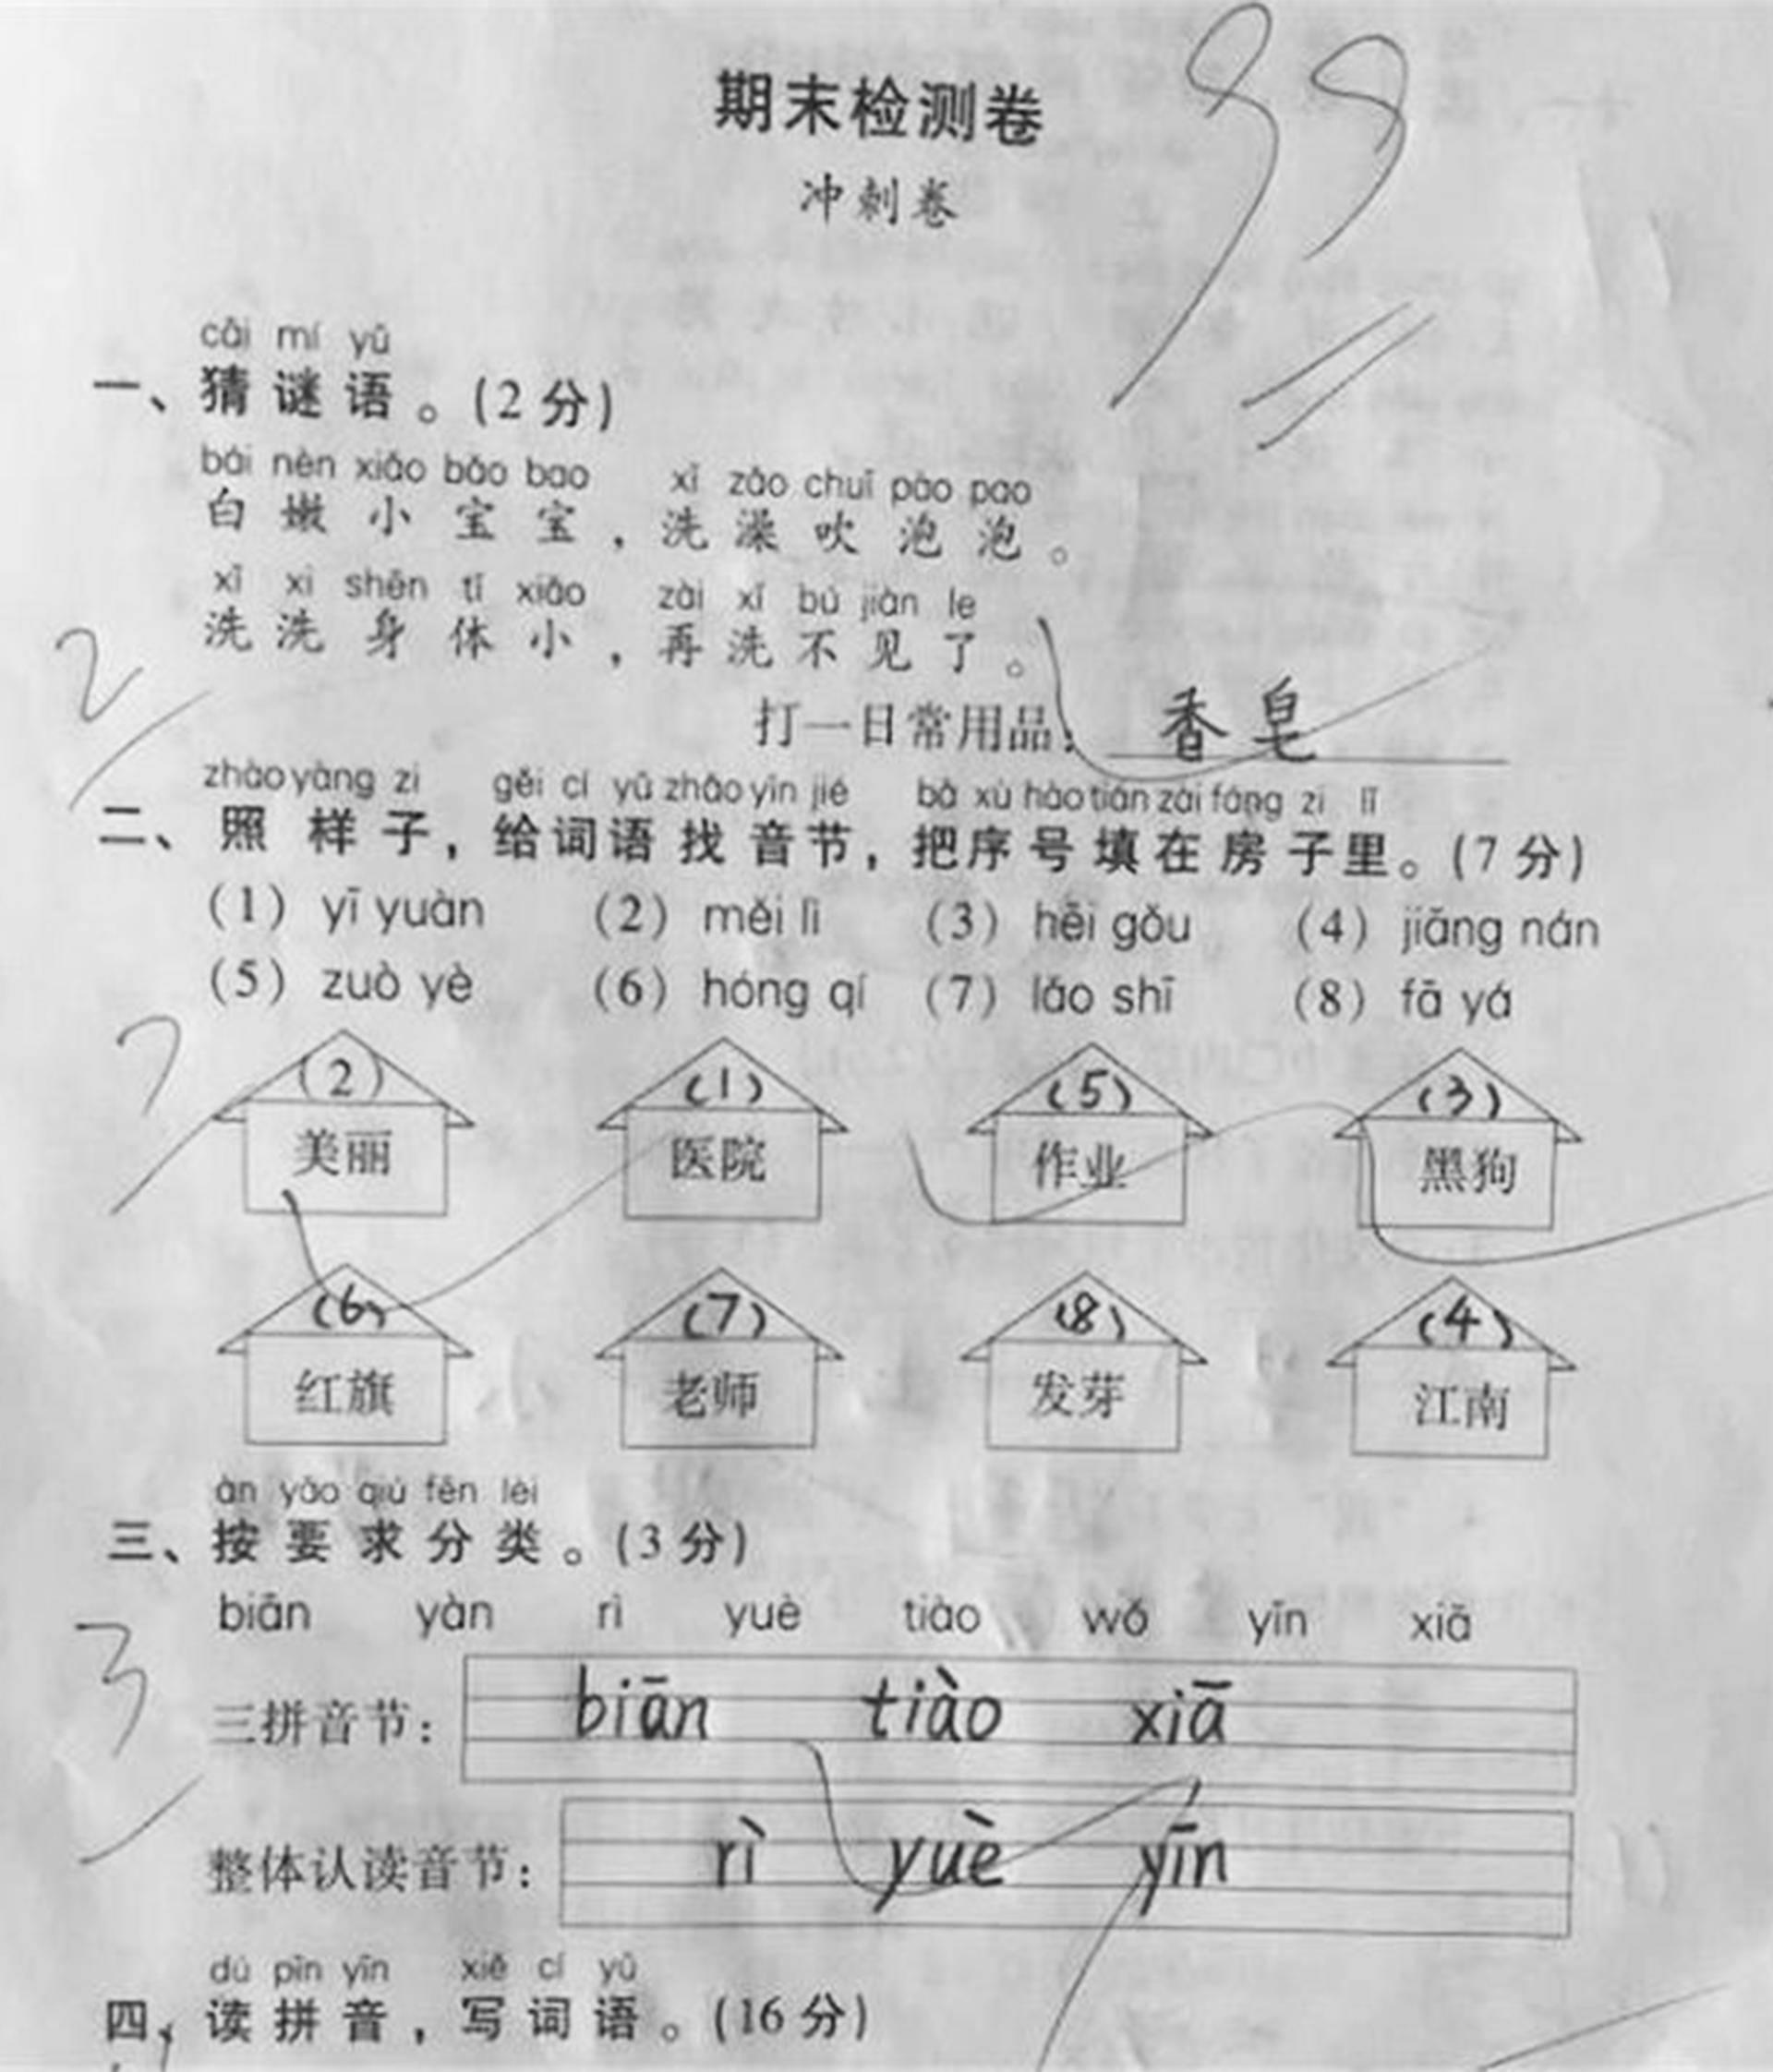 期末检测卷
99
冲刺卷
cāi mí yǔ
一、猜谜语。(2分)
bái nèn xiǎo bǎo bao xǐ zǎo chuī pào pao
白嫩小宝宝，洗澡吹泡泡。
xǐ xi shēn tǐ xiǎo zài xǐ bú jiàn le
洗洗身体小，再洗不见了。
2
打一日常用品：香皂
zhào yàng zi gěi cí yǔ zhǎo yīn jié bǎ xù hào tián zài fáng zi lǐ
二、照样子，给词语找音节，把序号填在房子里。(7分)
(1) yī yuàn (2) měi lì (3) hēi gǒu (4) jiāng nán
(5) zuò yè (6) hóng qí (7) lǎo shī (8) fā yá
7
(2) (1) (5) (3)
美丽 医院 作业 黑狗
(6) (7) (8) (4)
红旗 老师 发芽 江南
àn yāo qiú fēn lèi
三、按要求分类。(3分)
biān yàn rì yuè tiào wǒ yīn xiā
3
三拼音节：biān tiào xiā
整体认读音节：rì yuè yīn
dú pīn yīn xiě cí yǔ
四、读拼音，写词语。(16分)